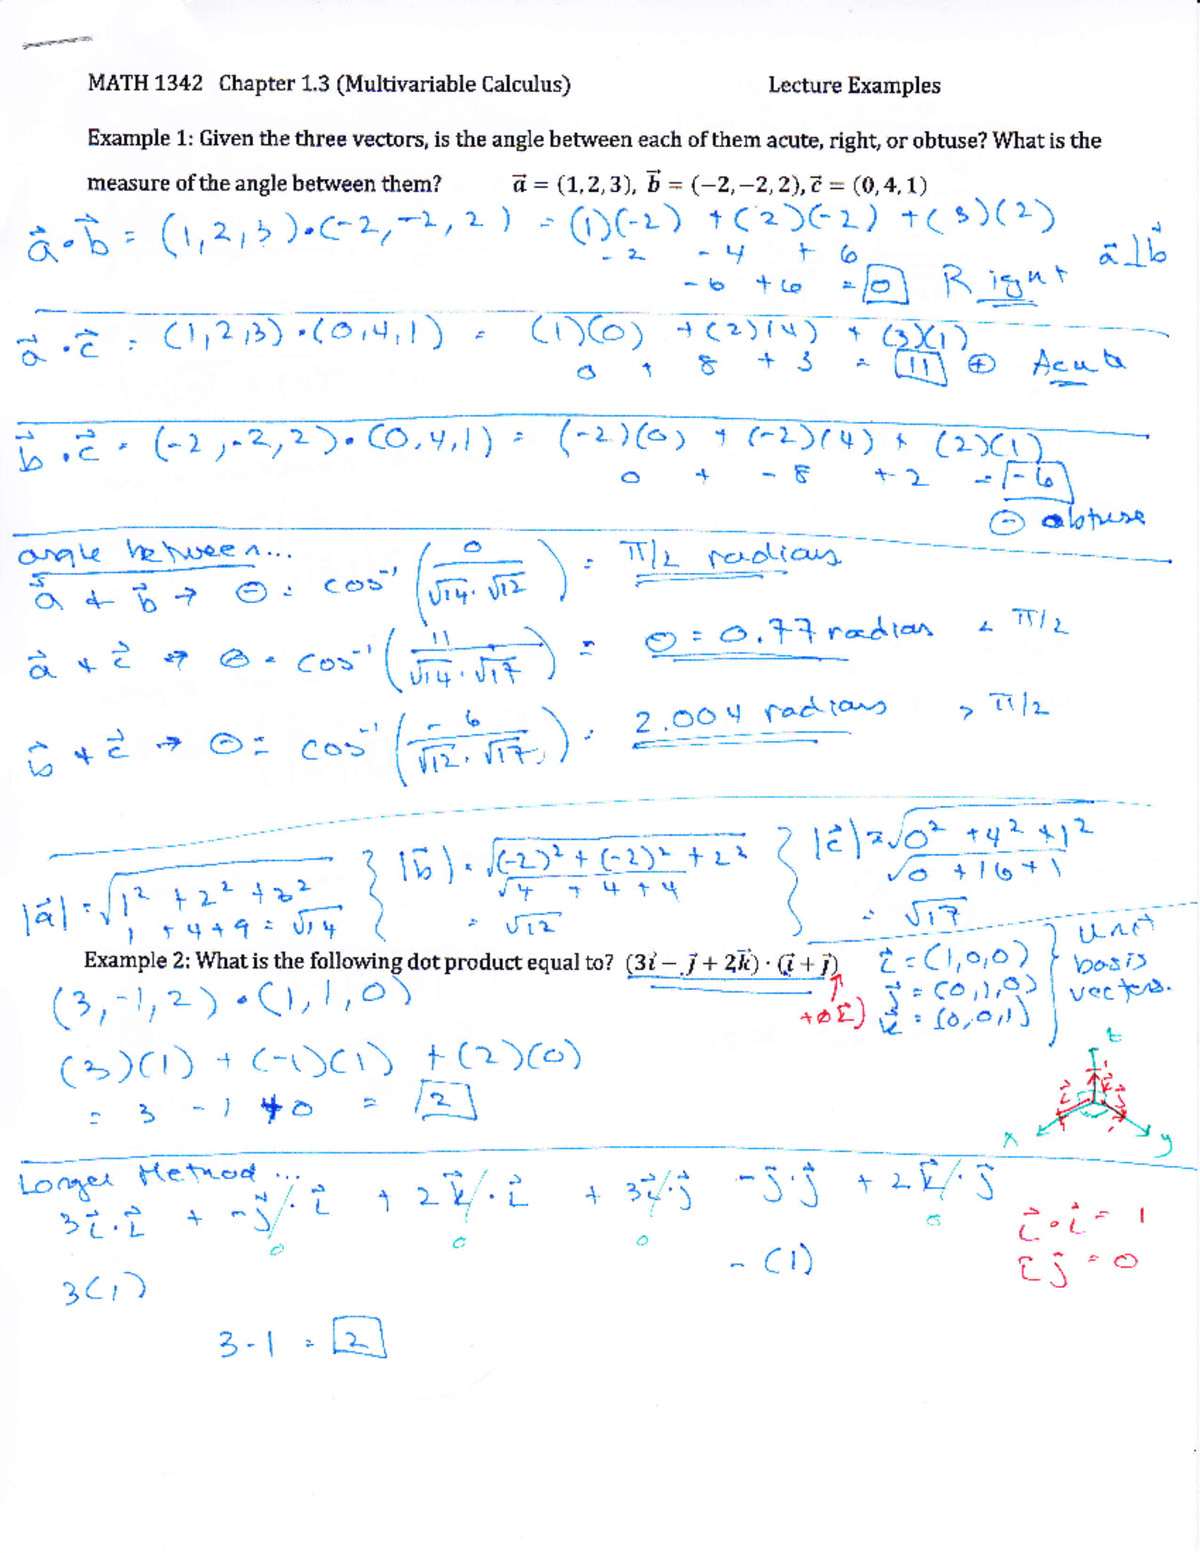 MATH 1342 Chapter 1.3 (Multivariable Calculus) Lecture Examples
Example 1: Given the three vectors, is the angle between each of them acute, right, or obtuse? What is the
measure of the angle between them? a⃗ = (1,2,3), b⃗ = (−2,−2,2), c⃗ = (0,4,1)
a⃗·b⃗ = (1,2,3)·(-2,-2,2) = (1)(-2) + (2)(-2) + (3)(2)
-2 -4 + 6 a⃗⊥b⃗
-6 +6 = 0 Right
a⃗·c⃗ = (1,2,3)·(0,4,1) = (1)(0) + (2)(4) + (3)(1)
0 + 8 + 3 = 11 ⊕ Acute
b⃗·c⃗ = (-2,-2,2)·(0,4,1) = (-2)(0) + (-2)(4) + (2)(1)
0 + -8 +2 = -6
⊖ obtuse
angle between...
a⃗ + b⃗ → θ = cos⁻¹(0/(√14·√12)) = π/2 radians
a⃗ + c⃗ → θ = cos⁻¹(11/(√14·√17)) = θ = 0.77 radian < π/2
b⃗ + c⃗ → θ = cos⁻¹(-6/(√12·√17)) = 2.004 radians > π/2
|a⃗| = √(1² + 2² + 3²) } |b⃗| = √((-2)² + (-2)² + 2²) } |c⃗| = √(0² + 4² + 1²)
1 + 4 + 9 = √14 √(4 + 4 + 4) √(0 + 16 + 1)
= √12 = √17
Example 2: What is the following dot product equal to? (3i⃗ − j⃗ + 2k⃗) · (i⃗ + j⃗)
+0k⃗)
i⃗ = (1,0,0) } unit
j⃗ = (0,1,0) basis
k⃗ = (0,0,1) vectors.
(3,-1,2)·(1,1,0)
(3)(1) + (-1)(1) + (2)(0)
= 3 - 1 + 0 = 2
z
i⃗ k⃗ j⃗
x y
Longer Method...
3i⃗·i⃗ + -j⃗·i⃗ + 2k⃗·i⃗ + 3i⃗·j⃗ -j⃗·j⃗ + 2k⃗·j⃗
0 0 0 0
i⃗·i⃗ = 1
i⃗ j⃗ = 0
3(1) -(1)
3-1 = 2